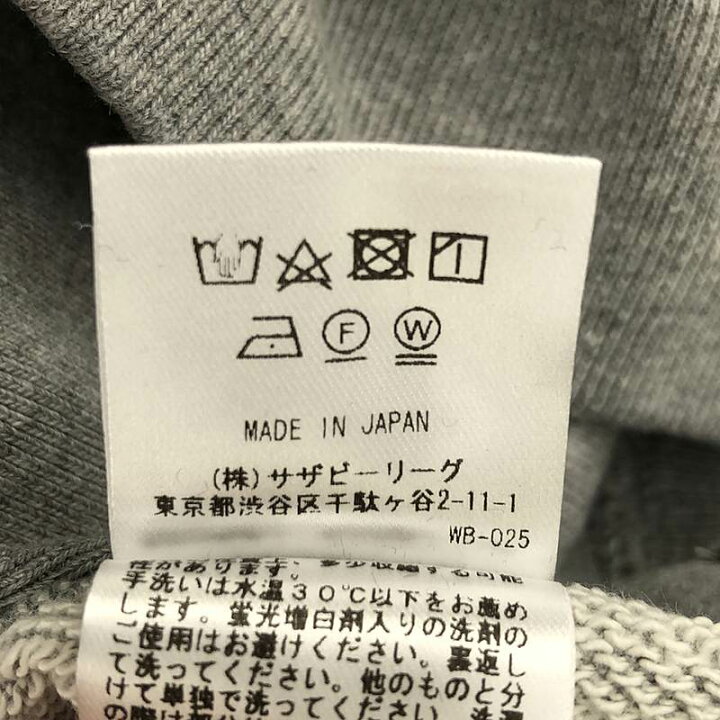 F W
MADE IN JAPAN
(株)サザビーリーグ
東京都渋谷区千駄ヶ谷2-11-1
WB-025
性があります。
手洗いは水温30℃以下をお薦め
します。蛍光増白剤入りの洗剤の
ご使用はお避けください。裏返し
て洗ってください。他のものと分
けて単独で洗ってください。洗濯
の際は部分